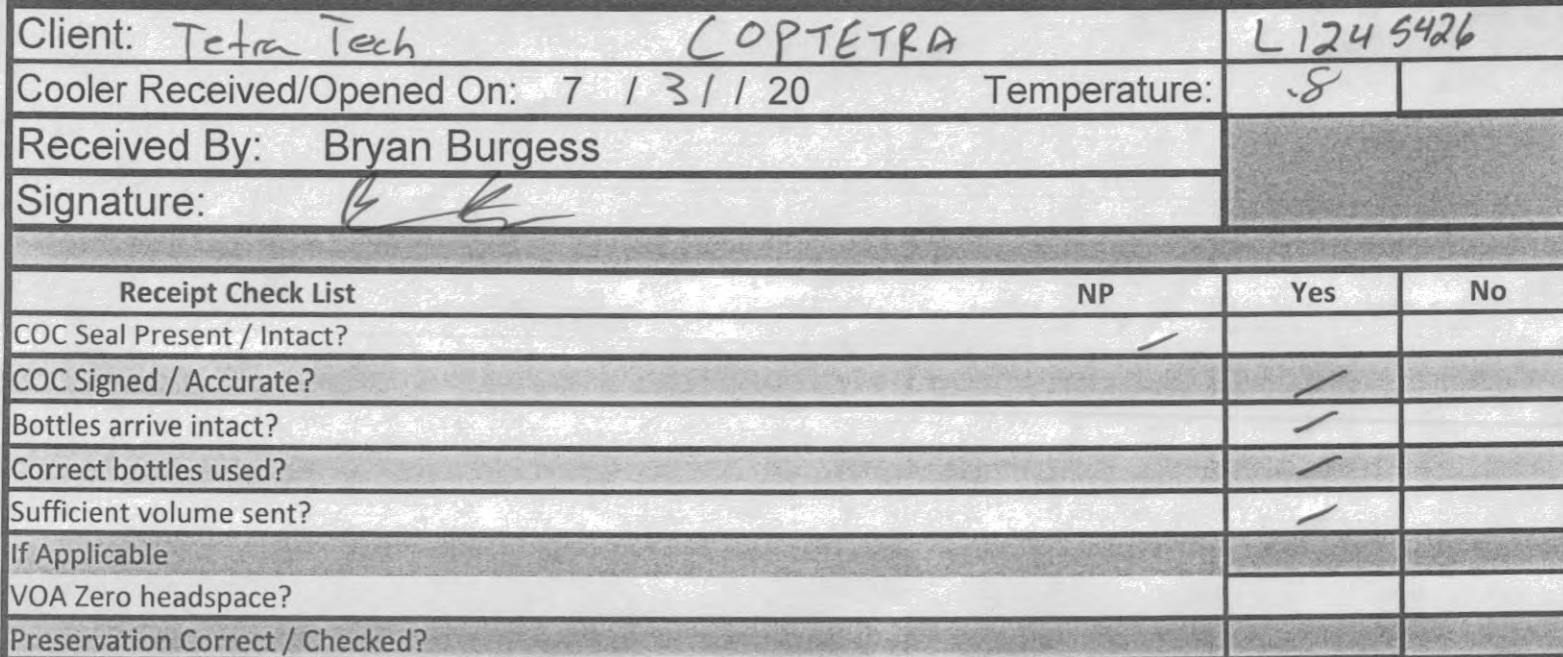 Client: Tetra Tech COPTETRA L1245426
Cooler Received/Opened On: 7 / 31 / 20 Temperature: .8
Received By: Bryan Burgess
Signature:
Receipt Check List NP Yes No
COC Seal Present / Intact?
COC Signed / Accurate?
Bottles arrive intact?
Correct bottles used?
Sufficient volume sent?
If Applicable
VOA Zero headspace?
Preservation Correct / Checked?